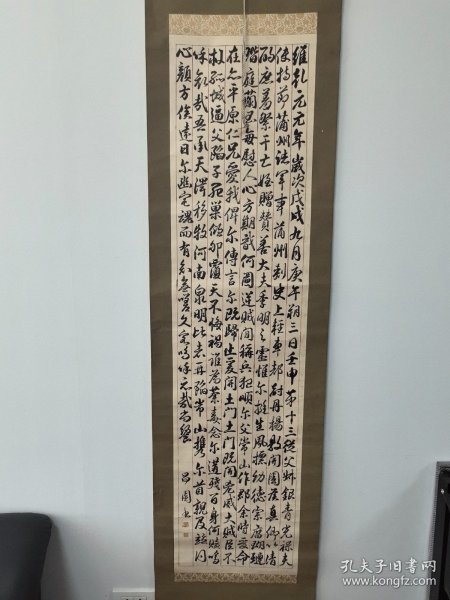 維乾元元年歲次戊戌九月庚午朔三日壬申第十三從父 銀青光祿夫
使持節蒲州諸軍事蒲州刺史上輕車都尉丹楊縣開國侯真卿以清
酌庶羞祭于亡姪贈贊善大夫季明之靈惟尔挺生夙標幼德宗廟瑚璉
階庭蘭玉每慰人心方期戩何圖逆賊間稱兵犯順尔父常山作郡余時受命
在平原仁兄愛我俾尔傳言尔既歸止爰開土門土門既開凶威大賊臣不
救孤城逼父陷子死巢傾卵覆天不悔禍誰為荼毒念尔遘殘百身何贖嗚
呼哀哉吾承天澤移牧河南泉明比者再陷常山攜尔首櫬及茲同
心顏方俟遠日尔幽宅魂而有知無嗟久客嗚呼哀哉尚饗
呂國
孔夫子旧书网